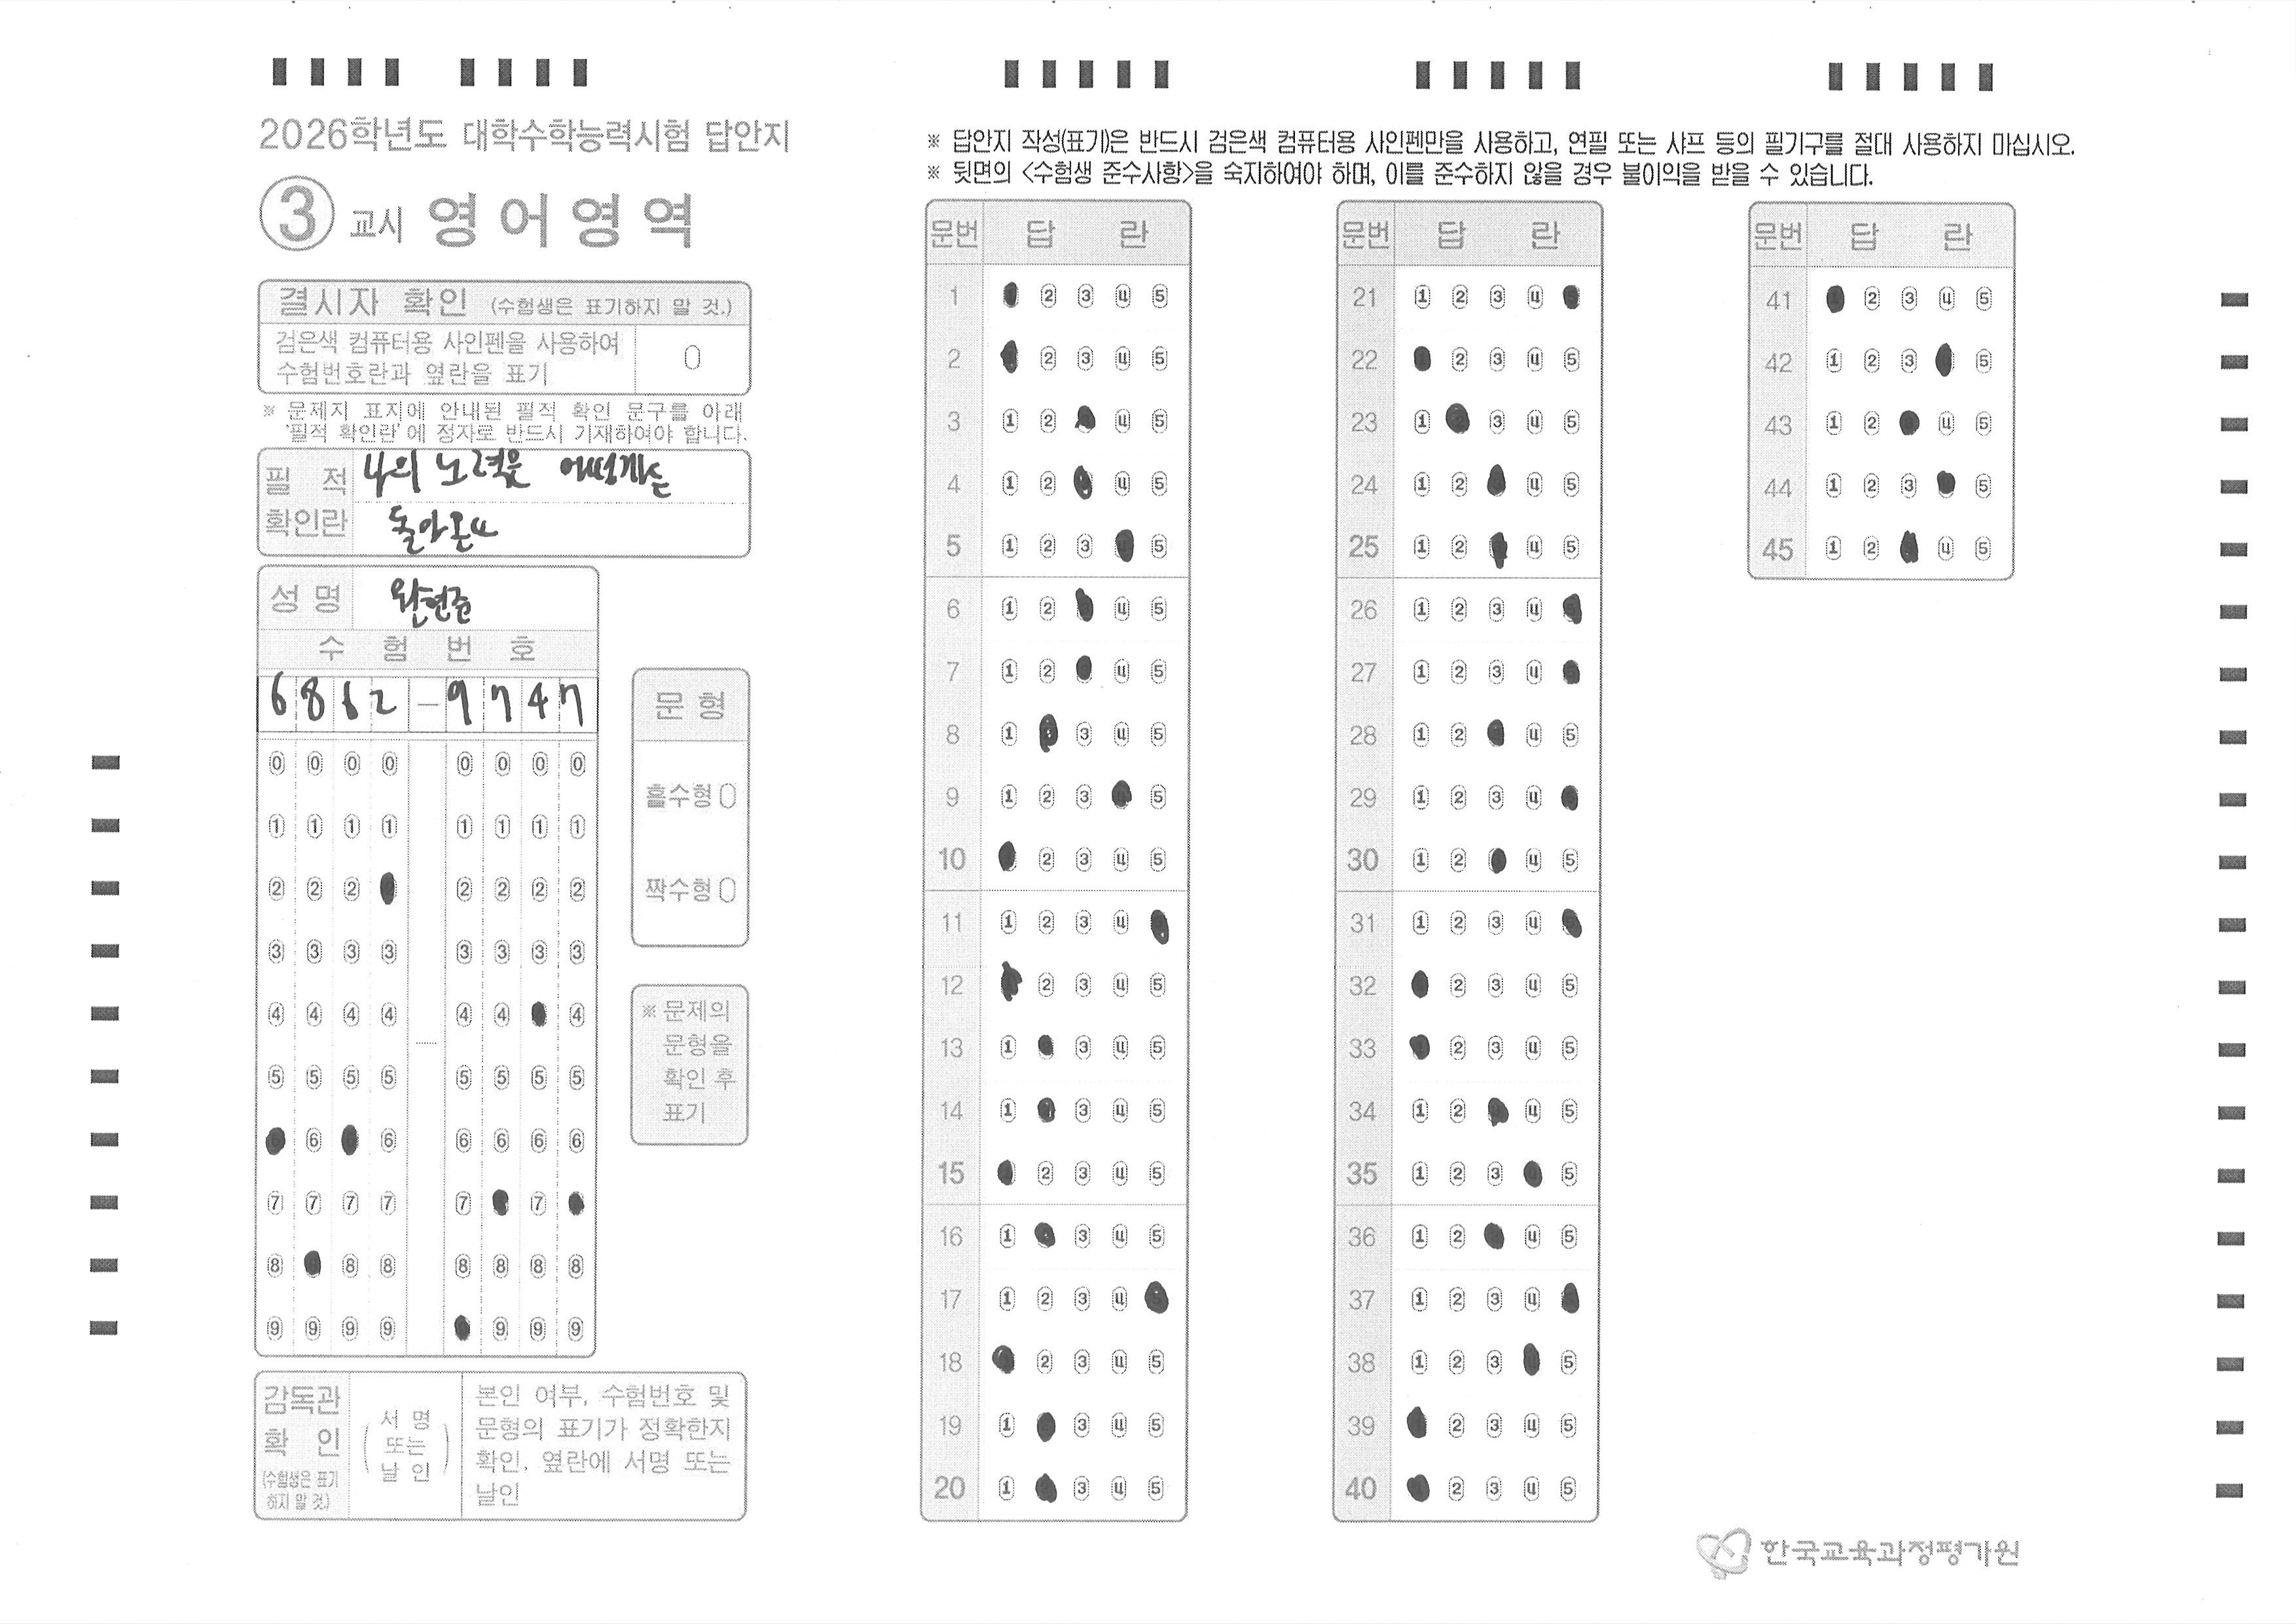 2026학년도 대학수학능력시험 답안지
③ 교시 영어영역
결시자 확인 (수험생은 표기하지 말 것.)
검은색 컴퓨터용 사인펜을 사용하여
수험번호란과 옆란을 표기
※ 문제지 표지에 안내된 필적 확인 문구를 아래
'필적 확인란'에 정자로 반드시 기재하여야 합니다.
필적 확인란
나의 노력은 어떻게든
돌아온다
성명
수험번호
6862-9747
0 0 0 0 0 0 0 0
1 1 1 1 1 1 1 1
2 2 2 2 2 2 2
3 3 3 3 3 3 3 3
4 4 4 4 4 4 4
5 5 5 5 5 5 5 5
6 6 6 6 6 6
7 7 7 7 7 7
8 8 8 8 8 8 8
9 9 9 9 9 9 9
문형
홀수형
짝수형
※ 문제의
문형을
확인 후
표기
감독관
확인
(수험생은 표기
하지 말 것.)
(서명
또는
날인)
본인 여부, 수험번호 및
문형의 표기가 정확한지
확인, 옆란에 서명 또는
날인
※ 답안지 작성(표기)은 반드시 검은색 컴퓨터용 사인펜만을 사용하고, 연필 또는 샤프 등의 필기구를 절대 사용하지 마십시오.
※ 뒷면의 <수험생 준수사항>을 숙지하여야 하며, 이를 준수하지 않을 경우 불이익을 받을 수 있습니다.
문번 답란
1 2 3 4 5
2 2 3 4 5
3 1 2 4 5
4 1 2 4 5
5 1 2 3 5
6 1 2 4 5
7 1 2 4 5
8 1 3 4 5
9 1 2 3 5
10 2 3 4 5
11 1 2 3 4
12 2 3 4 5
13 1 3 4 5
14 1 3 4 5
15 2 3 4 5
16 1 3 4 5
17 1 2 3 4
18 2 3 4 5
19 1 3 4 5
20 1 3 4 5
문번 답란
21 1 2 3 4
22 2 3 4 5
23 1 3 4 5
24 1 2 4 5
25 1 2 4 5
26 1 2 3 4
27 1 2 3 4
28 1 2 4 5
29 1 2 3 4
30 1 2 4 5
31 1 2 3 4
32 2 3 4 5
33 2 3 4 5
34 1 2 4 5
35 1 2 3 5
36 1 2 4 5
37 1 2 3 4
38 1 2 3 5
39 2 3 4 5
40 2 3 4 5
문번 답란
41 2 3 4 5
42 1 2 3 5
43 1 2 4 5
44 1 2 3 5
45 1 2 4 5
한국교육과정평가원